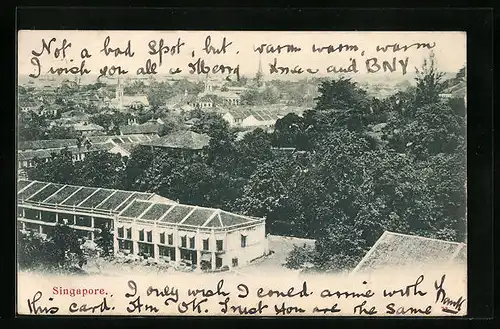 Not a bad spot, but. warm warm, warm
I wish you all a Merry Xmas and BNY
Singapore.
I only wish I could arrive with
this card. Am OK. Trust you are the same
Frank